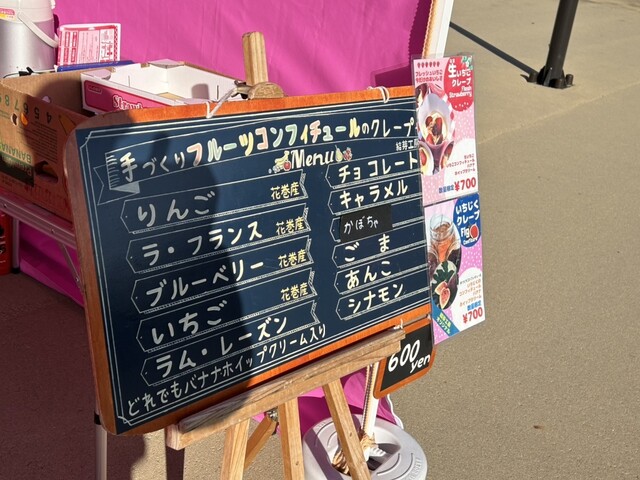 手づくりフルーツコンフィチュールのクレープ
紅苺工房
Menu
りんご 花巻産
ラ・フランス 花巻産
ブルーベリー 花巻産
いちご 花巻産
ラム・レーズン
チョコレート
キャラメル
かぼちゃ
ごま
あんこ
シナモン
どれでもバナナホイップクリーム入り
600
yen
生いちごクレープ
Fresh
Strawberry
¥700
いちじく
クレープ
Fig
Confiture
¥700